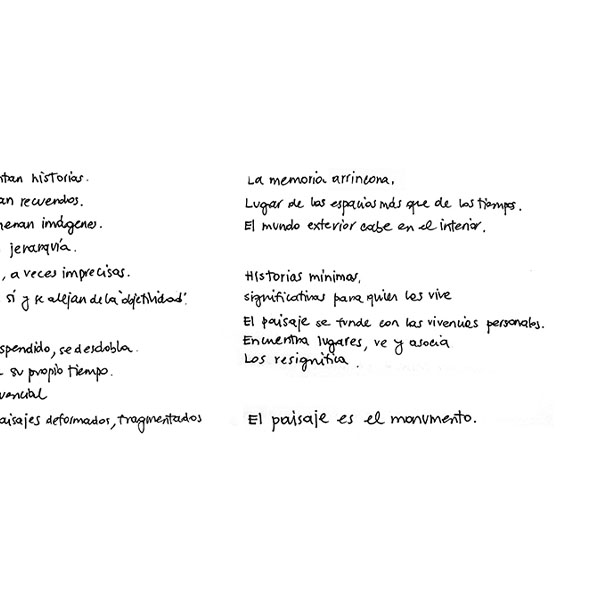 ntan historias.
an recuerdos.
nenan imágenes.
jerarquía.
, a veces imprecisas.
sí y se alejan de la "objetividad".
spendido, se desdobla.
su propio tiempo.
uencial
aisajes deformados, fragmentados
La memoria arrincona,
Lugar de los espacios más que de los tiempos.
El mundo exterior cabe en el interior.
Historias mínimas,
significativas para quien los vive
El paisaje se funde con las vivencias personales.
Encuentra lugares, ve y asocia
Los resignifica.
El paisaje es el monumento.